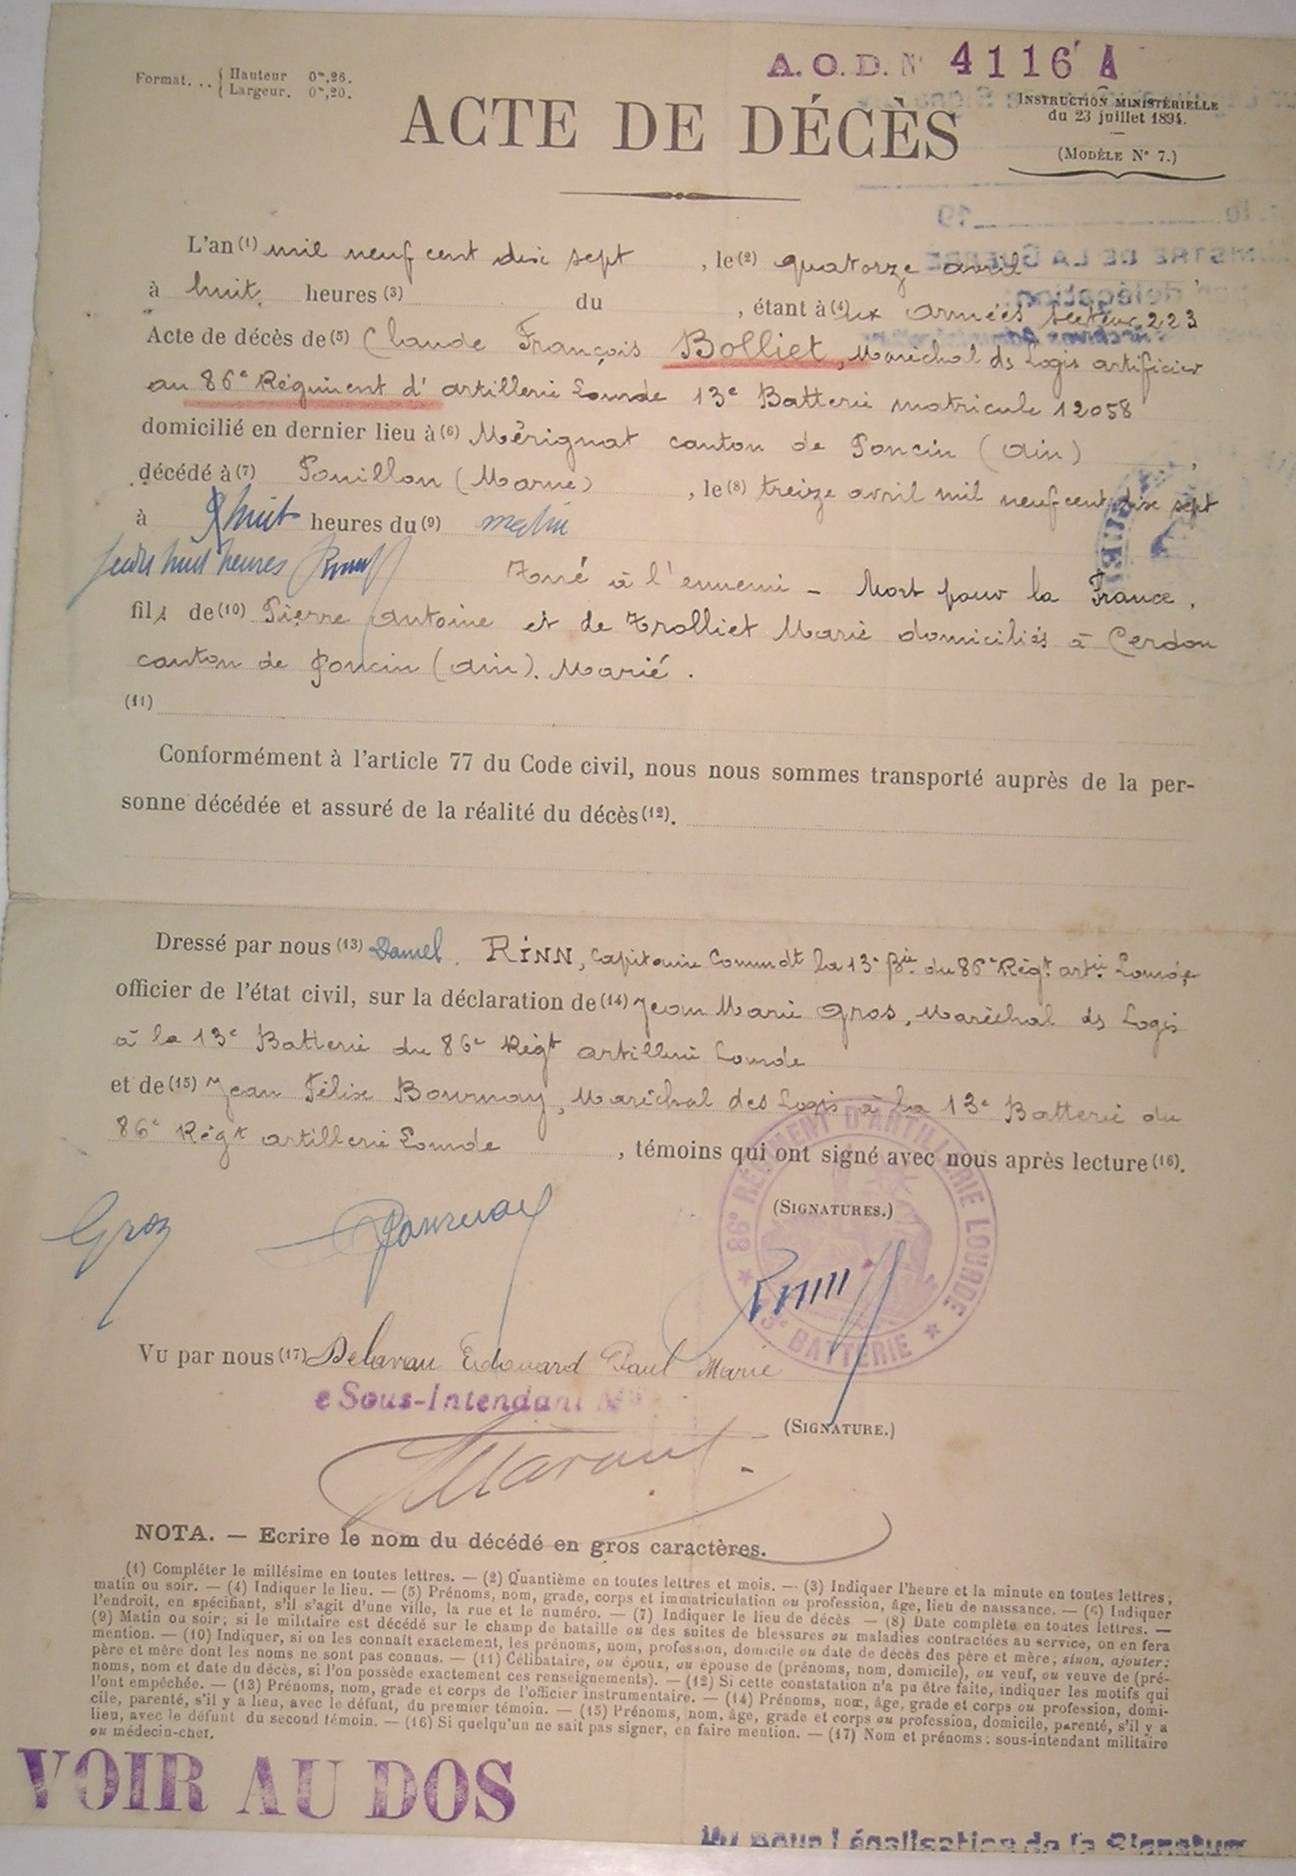 A.O.D. N° 4116 A
Format... { Hauteur 0m,26.
Largeur. 0m,20.
ACTE DE DÉCÈS
INSTRUCTION MINISTÉRIELLE
du 23 juillet 1894.
(MODÈLE N° 7.)
L'an (1) mil neuf cent dix sept , le (2) quatorze avril
à huit heures (3) du , étant à (4) aux armées secteur 223
Acte de décès de (5) Claude François Bolliet, Maréchal ds Logis artificier
au 86e Régiment d' artillerie Lourde 13e Batterie matricule 12058
domicilié en dernier lieu à (6) Mérignat canton de Poncin (Ain)
décédé à (7) Pouillon (Marne) , le (8) treize avril mil neuf cent dix sept
à huit heures du (9) matin
huit heures
Tué à l'ennemi - Mort pour la France.
fils de (10) Pierre Antoine et de Trolliet Marie domiciliés à Cerdon
canton de Poncin (Ain). Marié.
(11)
Conformément à l'article 77 du Code civil, nous nous sommes transporté auprès de la per-
sonne décédée et assuré de la réalité du décès (12).
Dressé par nous (13) Daniel RINN, Capitaine Commdt la 13e Bie du 86e Régt artie Lourde
officier de l'état civil, sur la déclaration de (14) Jean Marie Gros, Maréchal ds Logis
à la 13e Batterie du 86e Régt artillerie Lourde
et de (15) Jean Félix Bournay, Maréchal des Logis à la 13e Batterie du
86e Régt artillerie Lourde , témoins qui ont signé avec nous après lecture (16).
(SIGNATURES.)
Gros Bournay Rinn
86e RÉGIMENT D'ARTILLERIE LOURDE
★ 13e BATTERIE ★
VU par nous (17) Delavau Edouard Paul Marie
e Sous-Intendant
(SIGNATURE.)
NOTA. — Ecrire le nom du décédé en gros caractères.
(1) Compléter le millésime en toutes lettres. — (2) Quantième en toutes lettres et mois. — (3) Indiquer l'heure et la minute en toutes lettres;
matin ou soir. — (4) Indiquer le lieu. — (5) Prénoms, nom, grade, corps et immatriculation ou profession, âge, lieu de naissance. — (6) Indiquer
l'endroit, en spécifiant, s'il s'agit d'une ville, la rue et le numéro. — (7) Indiquer le lieu de décès — (8) Date complète en toutes lettres. —
(9) Matin ou soir; si le militaire est décédé sur le champ de bataille ou des suites de blessures ou maladies contractées au service, on en fera
mention. — (10) Indiquer, si on les connaît exactement, les prénoms, nom, profession, domicile ou date de décès des père et mère; sinon, ajouter:
père et mère dont les noms ne sont pas connus. — (11) Célibataire, ou époux, ou épouse de (prénoms, nom, domicile), ou veuf, ou veuve de (pré-
noms, nom et date du décès, si l'on possède exactement ces renseignements). — (12) Si cette constatation n'a pu être faite, indiquer les motifs qui
l'ont empêchée. — (13) Prénoms, nom, grade et corps de l'officier instrumentaire. — (14) Prénoms, nom, âge, grade et corps ou profession, domi-
cile, parenté, s'il y a lieu, avec le défunt, du premier témoin. — (15) Prénoms, nom, âge, grade et corps ou profession, domicile, parenté, s'il y a
lieu, avec le défunt du second témoin. — (16) Si quelqu'un ne sait pas signer, en faire mention. — (17) Nom et prénoms: sous-intendant militaire
ou médecin-chef.
VOIR AU DOS
Vu pour Légalisation de la Signature